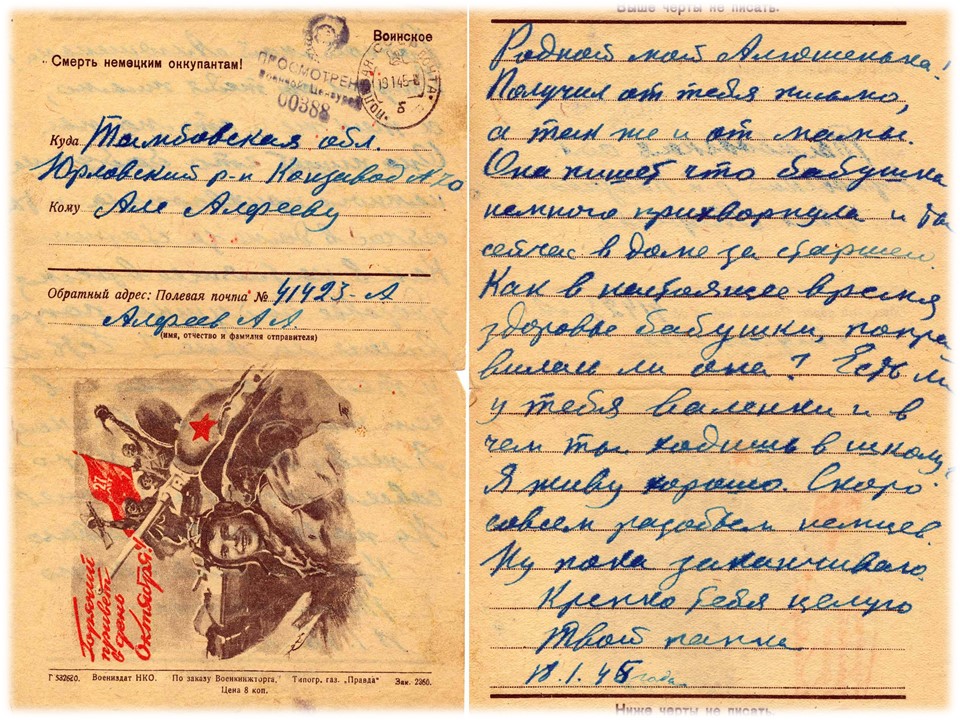 Воинское
Смерть немецким оккупантам!
ПРОСМОТРЕНО
Военной Цензурой
00388
19 1 45
Куда Тамбовская обл.
Юрловский р-н Конзавод № 70
Кому Але Алфееву
Обратный адрес: Полевая почта № 41423-А
Алфеев А А.
(имя, отчество и фамилия отправителя)
27
Горячий
привет
в день
Октября!
Г 532620. Воениздат НКО. По заказу Военкнижторга. Типогр. газ. „Правда“ Зак. 2360.
Цена 8 коп.
Выше черты не писать.
Родной мой Алюшенька!
Получил от тебя письмо,
а так же и от мамы.
Она пишет что бабушка
немного прихворнула и ты
сейчас в доме за старшего.
Как в настоящее время
здоровье бабушки, попра
вилась ли она? Есть ли
у тебя валенки и в
чем ты ходишь в школу?
Я живу хорошо. Скоро
совсем разобьем немцев.
Ну пока заканчиваю.
Крепко тебя целую
Твой папка
18.1.45 года
Ниже черты не писать.